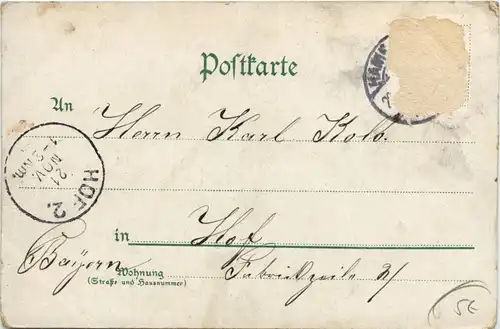 Postkarte
HAMB
An
Herrn Karl Kolb.
HOF 2.
21
NOV.
1-2 Nm.
in Hof
Bayern
Wohnung Fabrikzeile
(Straße und Hausnummer)
5E